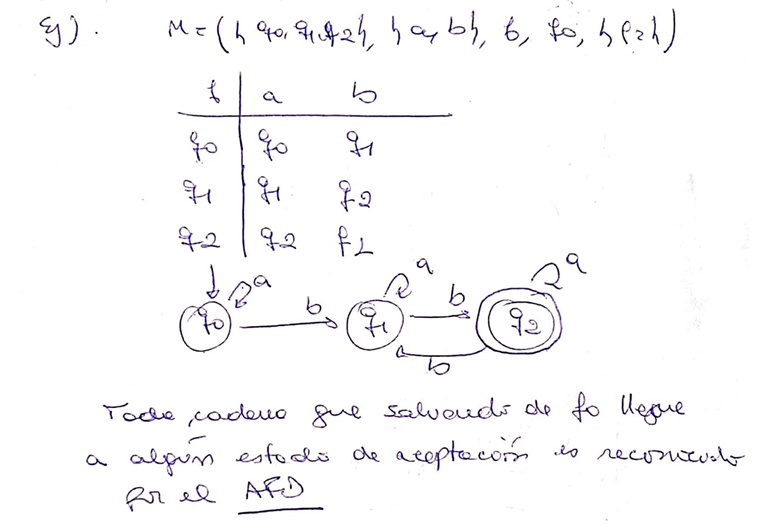 Ej). M = ({q0, q1, q2}, {a, b}, f, q0, {q2})
f a b
q0 q0 q1
q1 q1 q2
q2 q2 q1
a a a
q0 b q1 b q2
b
Toda cadena que saliendo de q0 llegue
a algún estado de aceptación es reconocida
por el AFD